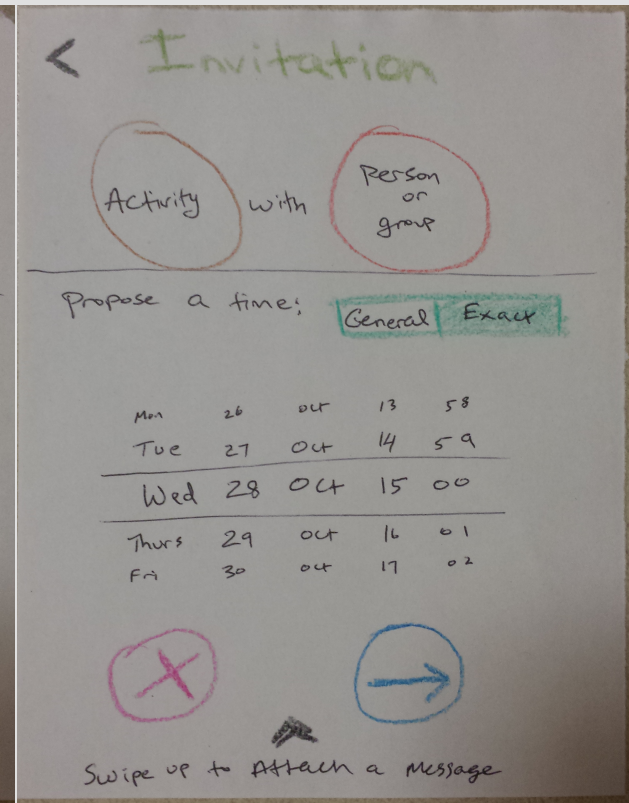 < Invitation
Activity with Person
or
group
Propose a time: General Exact
Mon 26 Oct 13 58
Tue 27 Oct 14 59
Wed 28 Oct 15 00
Thurs 29 Oct 16 01
Fri 30 Oct 17 02
Swipe up to Attach a Message